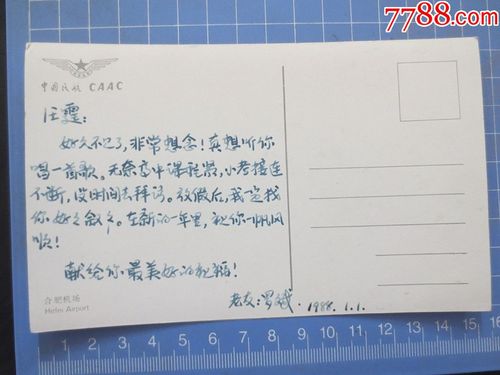 7788.com
中国民航 CAAC
汪霞:
好久不见了,非常想念!真想听你
唱一首歌。无奈高中课程紧,小考接连
不断,没时间去拜访。放假后,我定找
你好好叙叙。在新的一年里,祝你一帆风
顺!
献给你最美好的祝福!
合肥机场
Hefei Airport
老友:罗斌 1988.1.1.
1 2 3 4 5 6 7 8 9 10 11 12 13 14 15 16